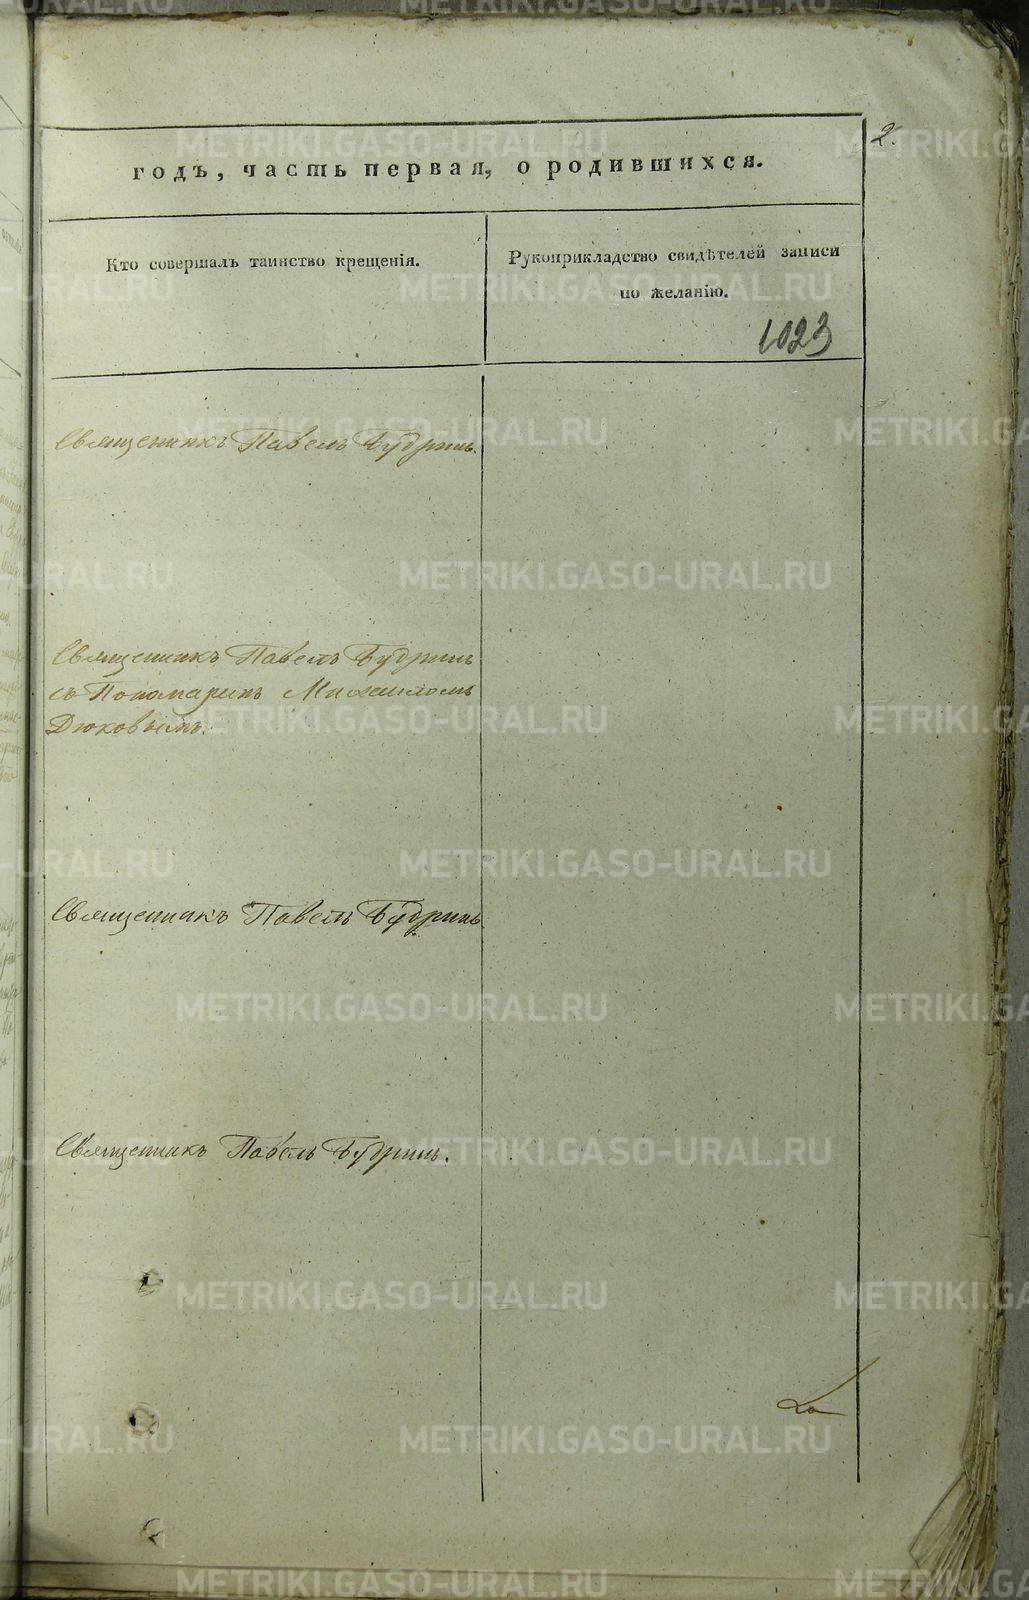 2.
годъ, часть первая, о родившихся.
Кто совершалъ таинство крещенія.
Рукоприкладство свидѣтелей записи
по желанію.
1023
Священникъ Павелъ Будринъ.
Священникъ Павелъ Будринъ
съ Пономаремъ Михаиломъ
Дюковымъ.
Священникъ Павелъ Будринъ
Священникъ Павелъ Будринъ.
METRIKI.GASO-URAL.RU